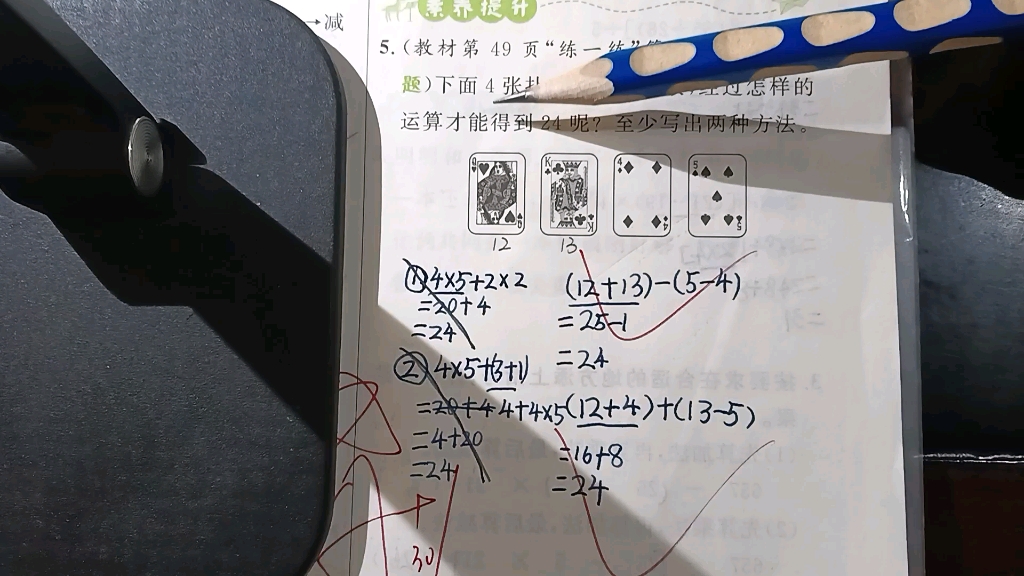 →减
素养提升
5.(教材第 49 页“练一练”
题)下面 4 张 经过怎样的
运算才能得到 24 呢? 至少写出两种方法。
Q K 4 5
12 13
① 4×5+2×2 (12+13)-(5-4)
=20+4 =25-1
=24 =24
② 4×5+(3+1)
=20+4 4+4×5 (12+4)+(13-5)
=4+20 =16+8
=24 =24
30